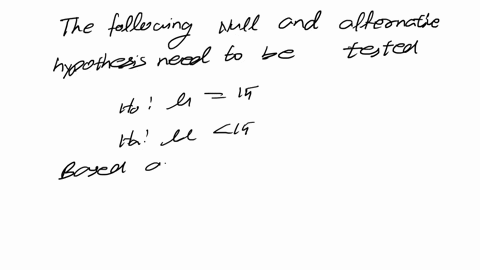 The following Null and alternative
hypothesis need to be tested
H₀: μ = 15
Ha: μ < 15
Based o